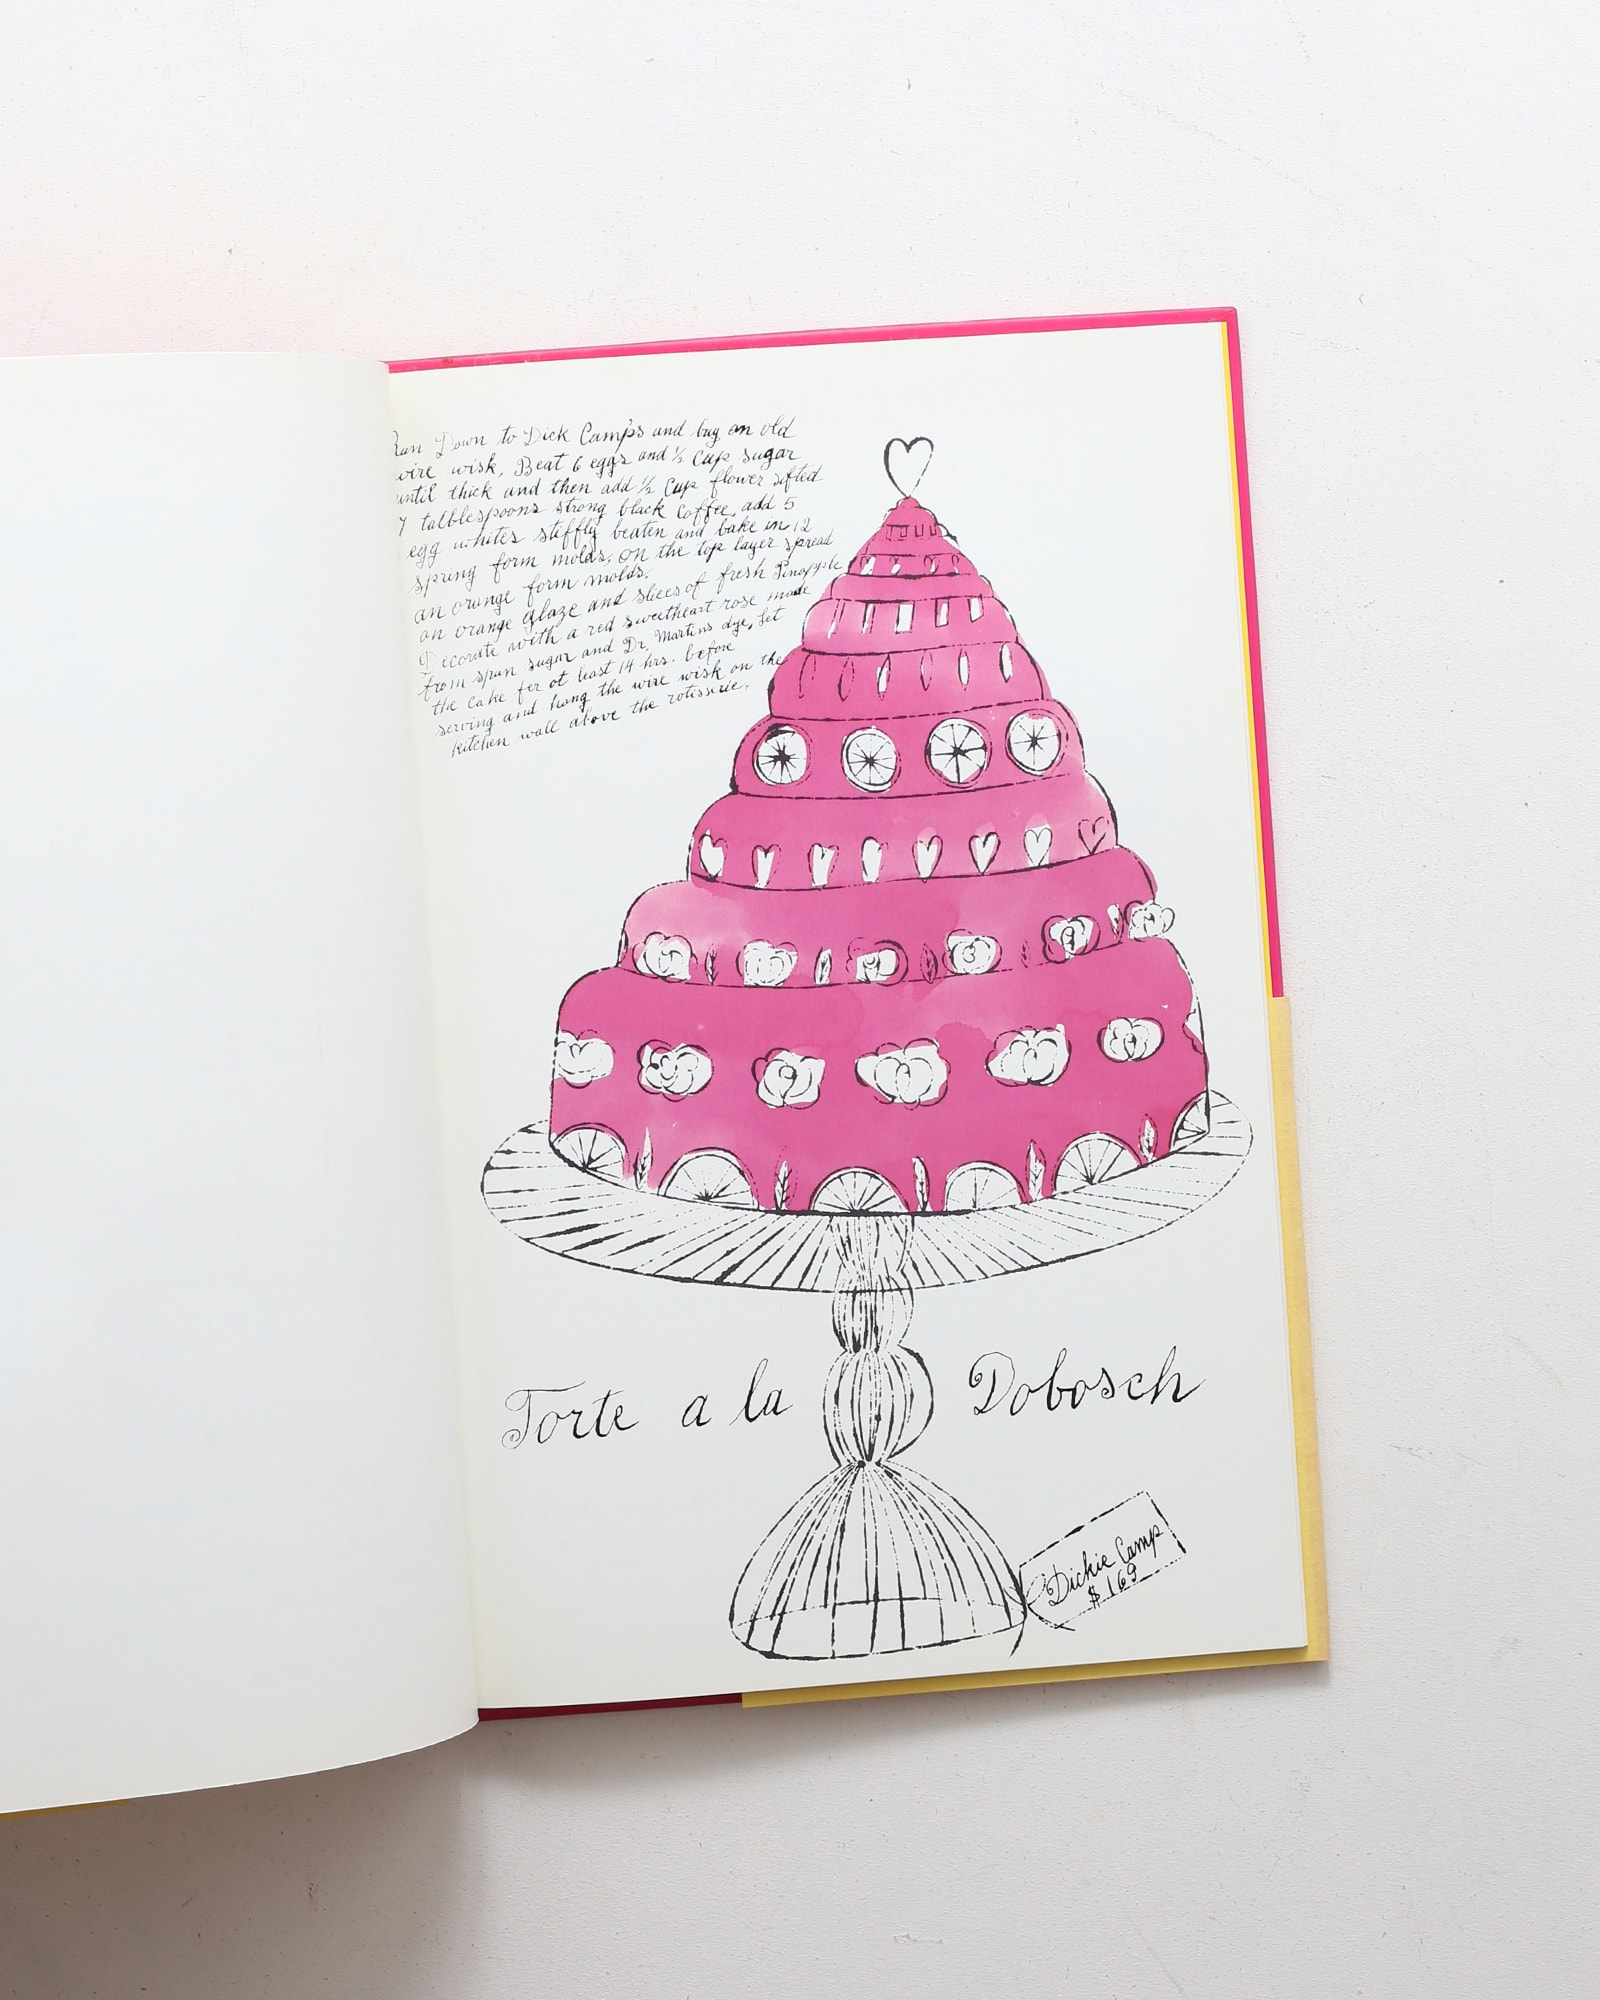 Run Down to Dick Camps and buy an old
wire wisk, Beat 6 eggs and ½ cup sugar
until thick and then add ½ cup flower sifted
7 talblespoons strong black coffee, add 5
egg whites stiffly beaten and bake in 12
spring form molds, on the top layer spread
an orange form molds.
an orange glaze and slices of fresh Pinapple
Decorate with a red sweetheart rose made
from spun sugar and Dr. Martins dye, Let
the cake fer at least 14 hrs. before
serving and hang the wire wisk on the
kitchen wall above the rotisserie.
Torte a la Dobosch
Dickie Camp
$ 169